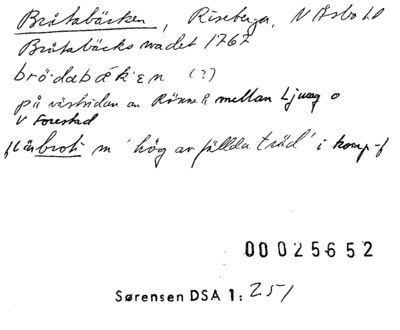 Bråtabäcken, Riseberga, N Åsbo hd
Bråtabäcks wadet 1767
brö·dabäken (?)
på västsidan av Rönne å mellan Ljung o
V Forestad
bråt m 'hög av fällda träd' i komp-f
00025652
Sørensen DSA 1: 251